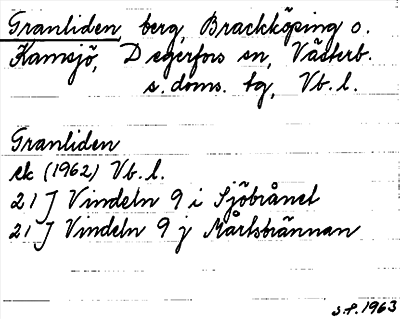 Granliden, berg, Brackköping o.
Kamsjö, Degerfors sn, Västerb.
s. doms. tg, Vb. l.
Granliden
ek (1962) Vb. l.
21 J Vindeln 9 i Sjöbrånet
21 J Vindeln 9 j Mårtsbrännan
1963